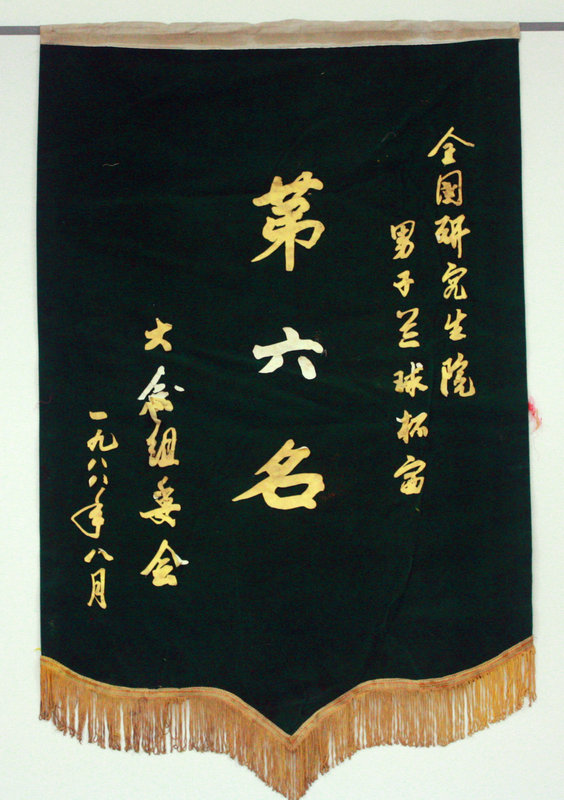 全国研究生院
男子兰球杯赛
第六名
大会组委会
一九八八年八月